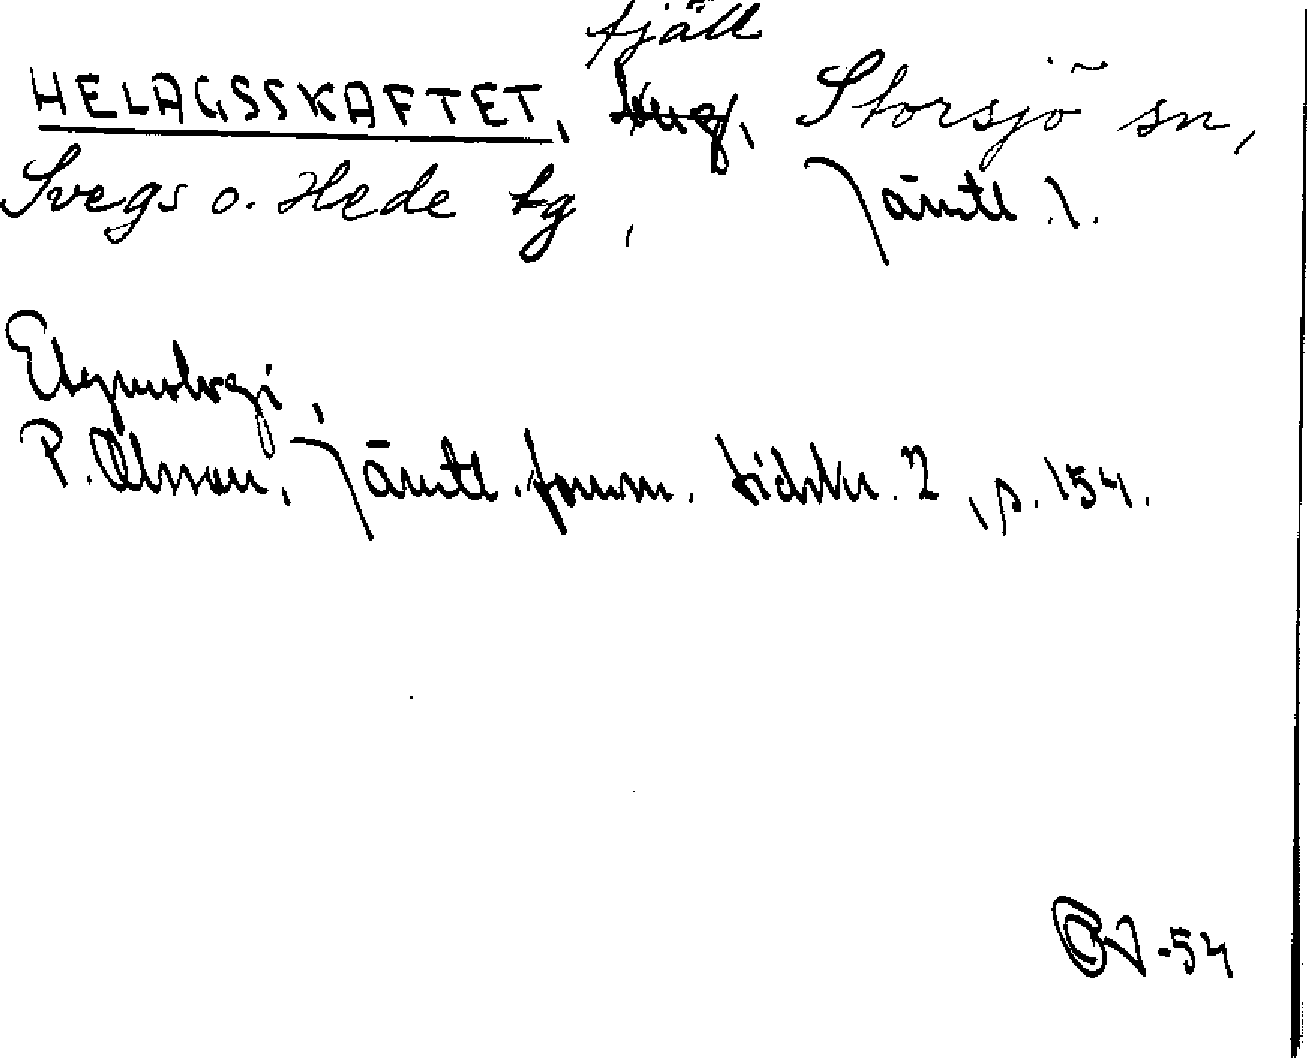 fjäll
HELAGSSKAFTET, Storsjö sn,
Svegs o. Hede tg, Jämtl. l.
Etymologi,
P. Olsson, Jämtl. fornm. tidskr. 2, s. 154.
-54